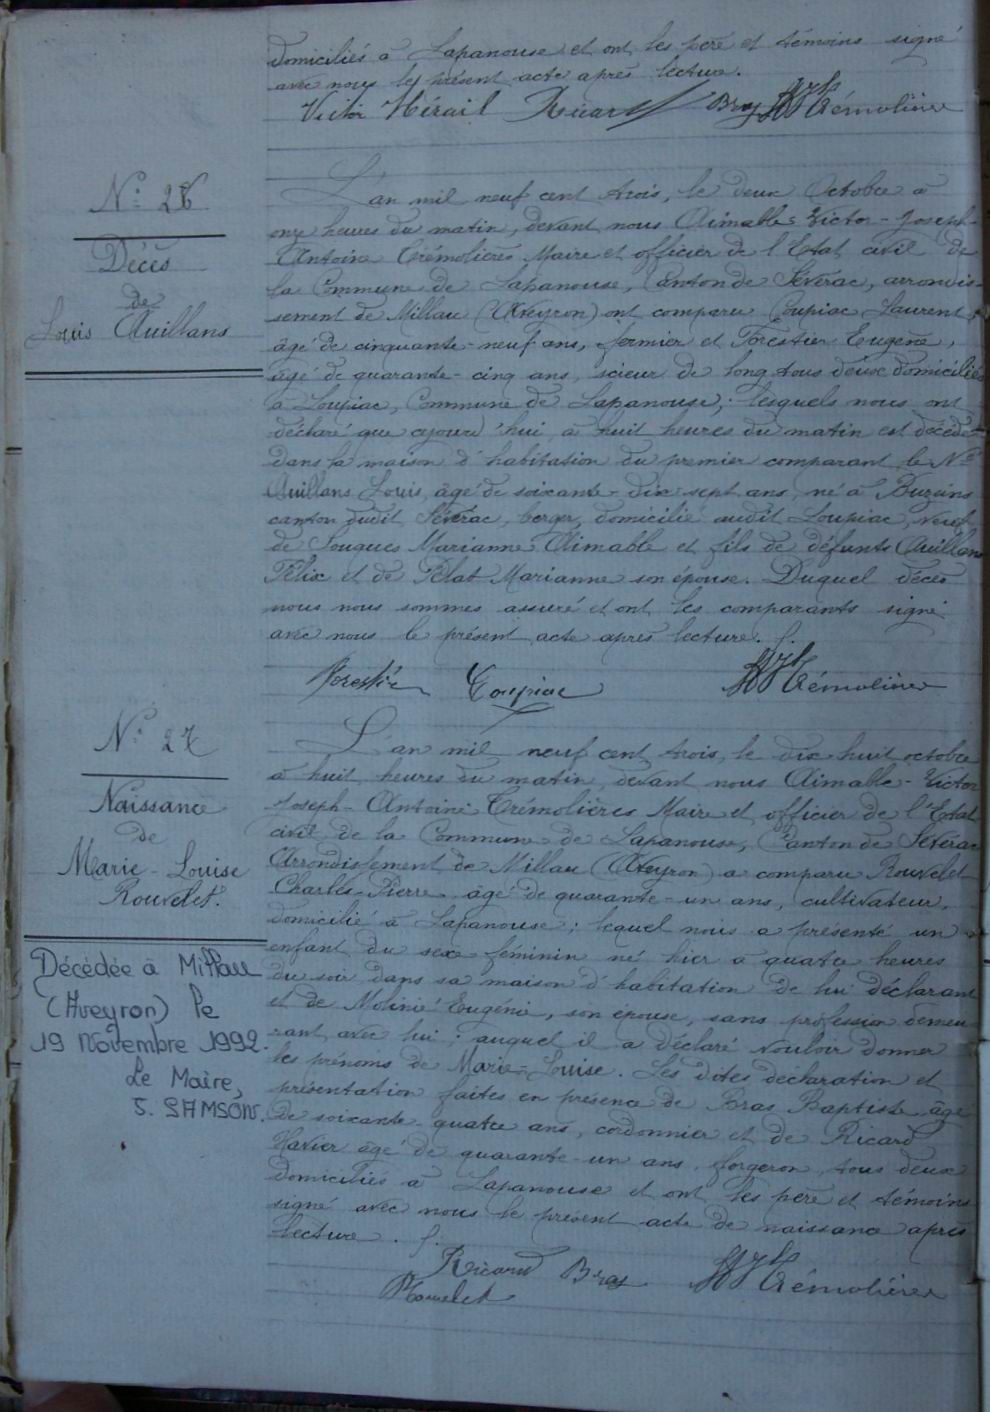 domiciliés à Lapanouse et ont les père et témoins signé
avec nous le présent acte après lecture.
Victor Hérail Ricard Bras Trémolières
N° 26
Décès
de
Louis Quillans
L'an mil neuf cent trois, le deux Octobre à
onze heures du matin, devant nous Aimable-Victor-Joseph-
Antoine Trémolières Maire et officier de l'Etat civil de
la Commune de Lapanouse, Canton de Sévérac, arrondis-
sement de Millau (Aveyron) ont comparu Coupiac Laurent,
âgé de cinquante-neuf ans, fermier et Forestier Eugène,
âgé de quarante-cinq ans, scieur de long tous deux domiciliés
à Loupiac, Commune de Lapanouse; lesquels nous ont
déclaré que cejourd'hui à huit heures du matin est décédé
dans la maison d'habitation du premier comparant le N^é
Quillans Louis, âgé de soixante-dix-sept ans, né à Buzeins
canton dudit Sévérac, berger, domicilié audit Loupiac, veuf
de Souques Marianne Aimable et fils de défunts Quillans
Félix et de Pélat Marianne son épouse. Duquel décès
nous nous sommes assuré et ont les comparants signé
avec nous le présent acte après lecture.
Forestier Coupiac Trémolières
N° 27
Naissance
de
Marie-Louise
Rouvelet.
Décédée à Millau
(Aveyron) le
19 Novembre 1992.
Le Maire,
S. SAMSON.
L'an mil neuf cent trois, le dix huit octobre
à huit heures du matin, devant nous Aimable-Victor
Joseph-Antoine Trémolières Maire et officier de l'Etat
civil de la Commune de Lapanouse, Canton de Sévérac
Arrondissement de Millau (Aveyron) a comparu Rouvelet
Charles-Pierre âgé de quarante-un ans, cultivateur,
domicilié à Lapanouse; lequel nous a présenté un
enfant du sexe féminin né hier à quatre heures
du soir dans sa maison d'habitation de lui déclarant
et de Molinié Eugénie, son épouse, sans profession demeu-
rant avec lui; auquel il a déclaré vouloir donner
les prénoms de Marie-Louise. Les dites déclaration et
présentation faites en présence de Bras Baptiste âgé
de soixante-quatre ans, cordonnier et de Ricard
Xavier âgé de quarante-un ans, forgeron, tous deux
domiciliés à Lapanouse et ont les père et témoins
signé avec nous le présent acte de naissance après
lecture.
Ricard Bras Trémolières
Rouvelet